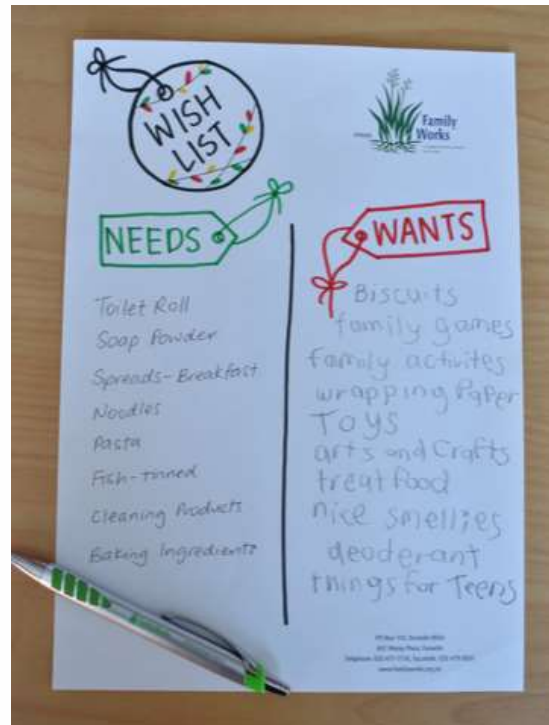 WISH
LIST
Family
Works
NEEDS
Toilet Roll
Soap Powder
Spreads-Breakfast
Noodles
Pasta
Fish-tinned
Cleaning Products
Baking Ingredients
WANTS
Biscuits
family games
family activites
wrapping Paper
Toys
arts and Crafts
treat food
nice smellies
deoderant
things for Teens